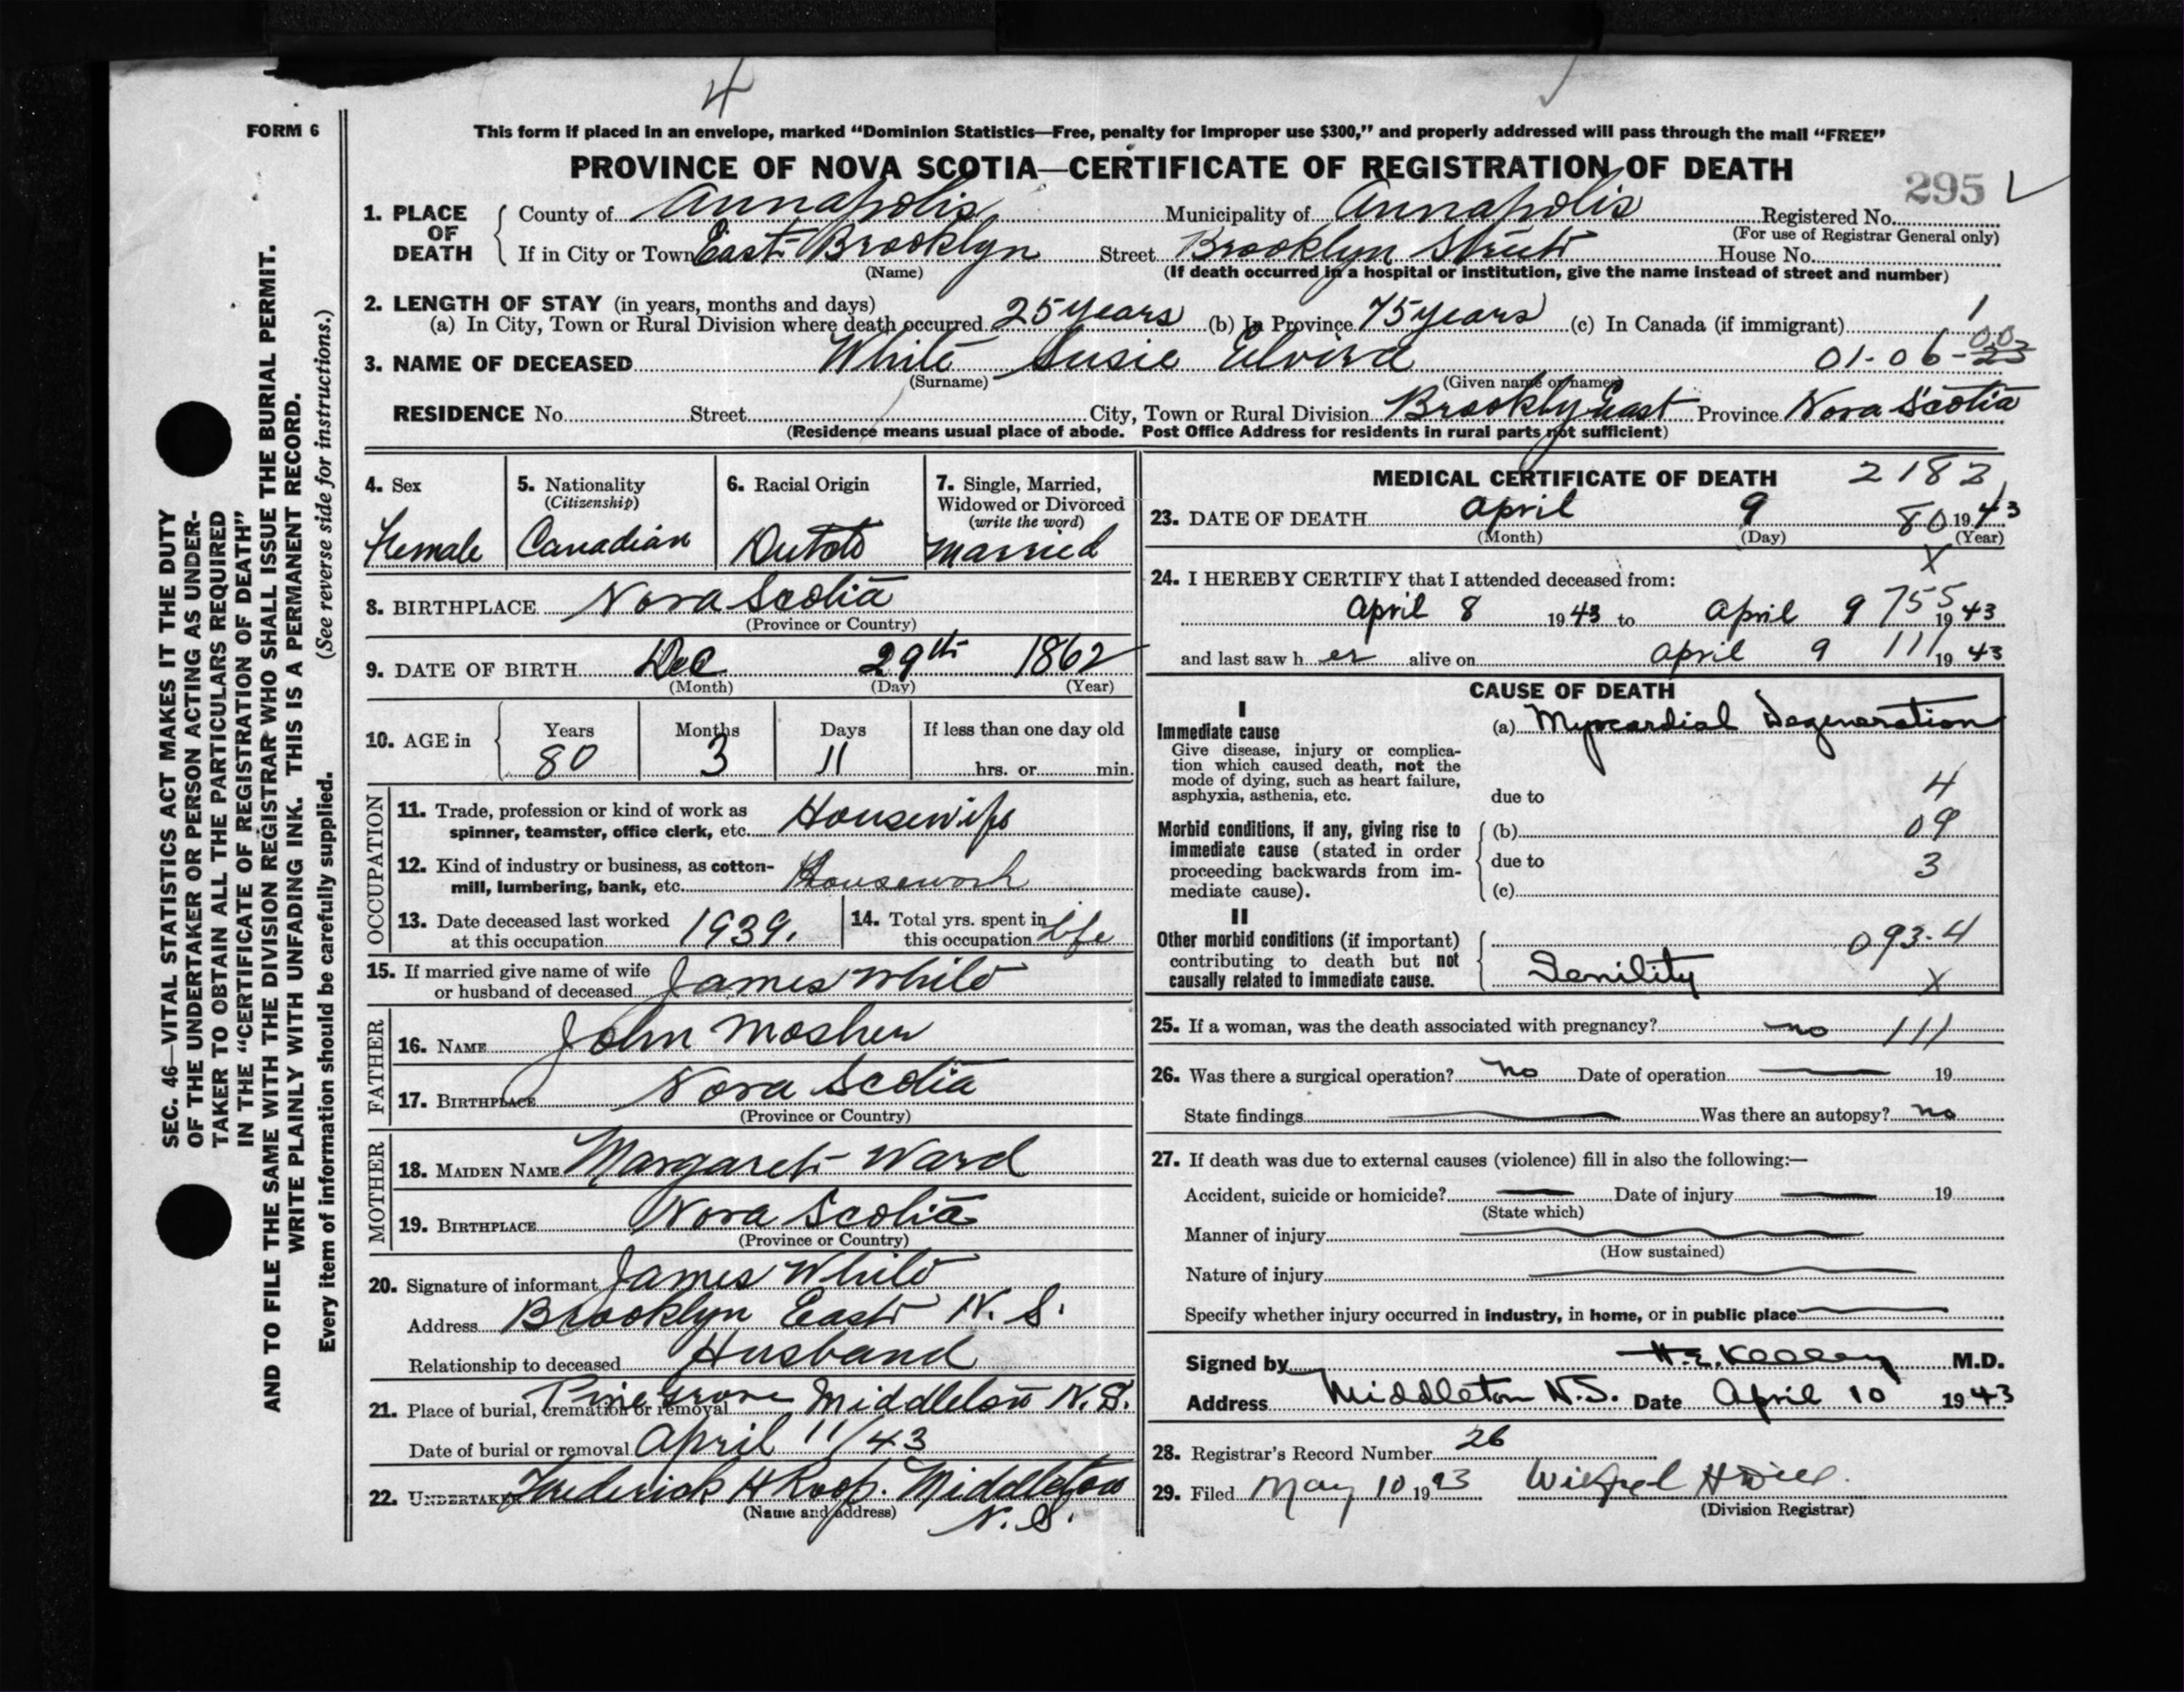 4
FORM 6
This form if placed in an envelope, marked "Dominion Statistics—Free, penalty for improper use $300," and properly addressed will pass through the mail "FREE"
PROVINCE OF NOVA SCOTIA—CERTIFICATE OF REGISTRATION OF DEATH
295
1. PLACE OF DEATH
County of Annapolis Municipality of Annapolis Registered No.
(For use of Registrar General only)
If in City or Town East Brooklyn Street Brooklyn Street House No.
(Name) (If death occurred in a hospital or institution, give the name instead of street and number)
2. LENGTH OF STAY (in years, months and days)
(a) In City, Town or Rural Division where death occurred 25 years (b) In Province 75 years (c) In Canada (if immigrant) 1
3. NAME OF DECEASED White Susie Elvira 01-06-23 00
(Surname) (Given name or names)
RESIDENCE No. Street City, Town or Rural Division Brooklyn East Province Nova Scotia
(Residence means usual place of abode. Post Office Address for residents in rural parts not sufficient)
4. Sex
Female
5. Nationality
(Citizenship)
Canadian
6. Racial Origin
Dutch
7. Single, Married,
Widowed or Divorced
(write the word)
Married
8. BIRTHPLACE Nova Scotia
(Province or Country)
9. DATE OF BIRTH Dec 29th 1862
(Month) (Day) (Year)
10. AGE in
Years Months Days If less than one day old
80 3 11 hrs. or min.
OCCUPATION
11. Trade, profession or kind of work as
spinner, teamster, office clerk, etc. Housewife
12. Kind of industry or business, as cotton-
mill, lumbering, bank, etc. Housework
13. Date deceased last worked
at this occupation 1939.
14. Total yrs. spent in
this occupation life
15. If married give name of wife
or husband of deceased James White
FATHER
16. NAME John Mosher
17. BIRTHPLACE Nova Scotia
(Province or Country)
MOTHER
18. MAIDEN NAME Margaret Ward
19. BIRTHPLACE Nova Scotia
(Province or Country)
20. Signature of informant James White
Address Brooklyn East N. S.
Relationship to deceased Husband
21. Place of burial, cremation or removal Pine Grove Middleton N.S.
Date of burial or removal April 11/43
22. UNDERTAKER Frederick H Roop. Middleton
(Name and address) N. S.
MEDICAL CERTIFICATE OF DEATH 2182
23. DATE OF DEATH April 9 80 1943
(Month) (Day) (Year)
X
24. I HEREBY CERTIFY that I attended deceased from:
April 8 1943 to April 9 755 1943
and last saw her alive on April 9 111 1943
CAUSE OF DEATH
I
Immediate cause
Give disease, injury or complica-
tion which caused death, not the
mode of dying, such as heart failure,
asphyxia, asthenia, etc.
(a) Myocardial Degeneration
due to 4
Morbid conditions, if any, giving rise to
immediate cause (stated in order
proceeding backwards from im-
mediate cause).
(b) 09
due to 3
(c)
II
Other morbid conditions (if important)
contributing to death but not
causally related to immediate cause.
093-4
Senility X
25. If a woman, was the death associated with pregnancy? no 111
26. Was there a surgical operation? no Date of operation 19
State findings Was there an autopsy? no
27. If death was due to external causes (violence) fill in also the following:—
Accident, suicide or homicide? Date of injury 19
(State which)
Manner of injury
(How sustained)
Nature of injury
Specify whether injury occurred in industry, in home, or in public place
Signed by H.E. Kelley M.D.
Address Middleton N.S. Date April 10 1943
28. Registrar's Record Number 26
29. Filed May 10 1943
(Division Registrar)
SEC. 46—VITAL STATISTICS ACT MAKES IT THE DUTY
OF THE UNDERTAKER OR PERSON ACTING AS UNDER-
TAKER TO OBTAIN ALL THE PARTICULARS REQUIRED
IN THE "CERTIFICATE OF REGISTRATION OF DEATH"
AND TO FILE THE SAME WITH THE DIVISION REGISTRAR WHO SHALL ISSUE THE BURIAL PERMIT.
WRITE PLAINLY WITH UNFADING INK. THIS IS A PERMANENT RECORD.
Every item of information should be carefully supplied. (See reverse side for instructions.)